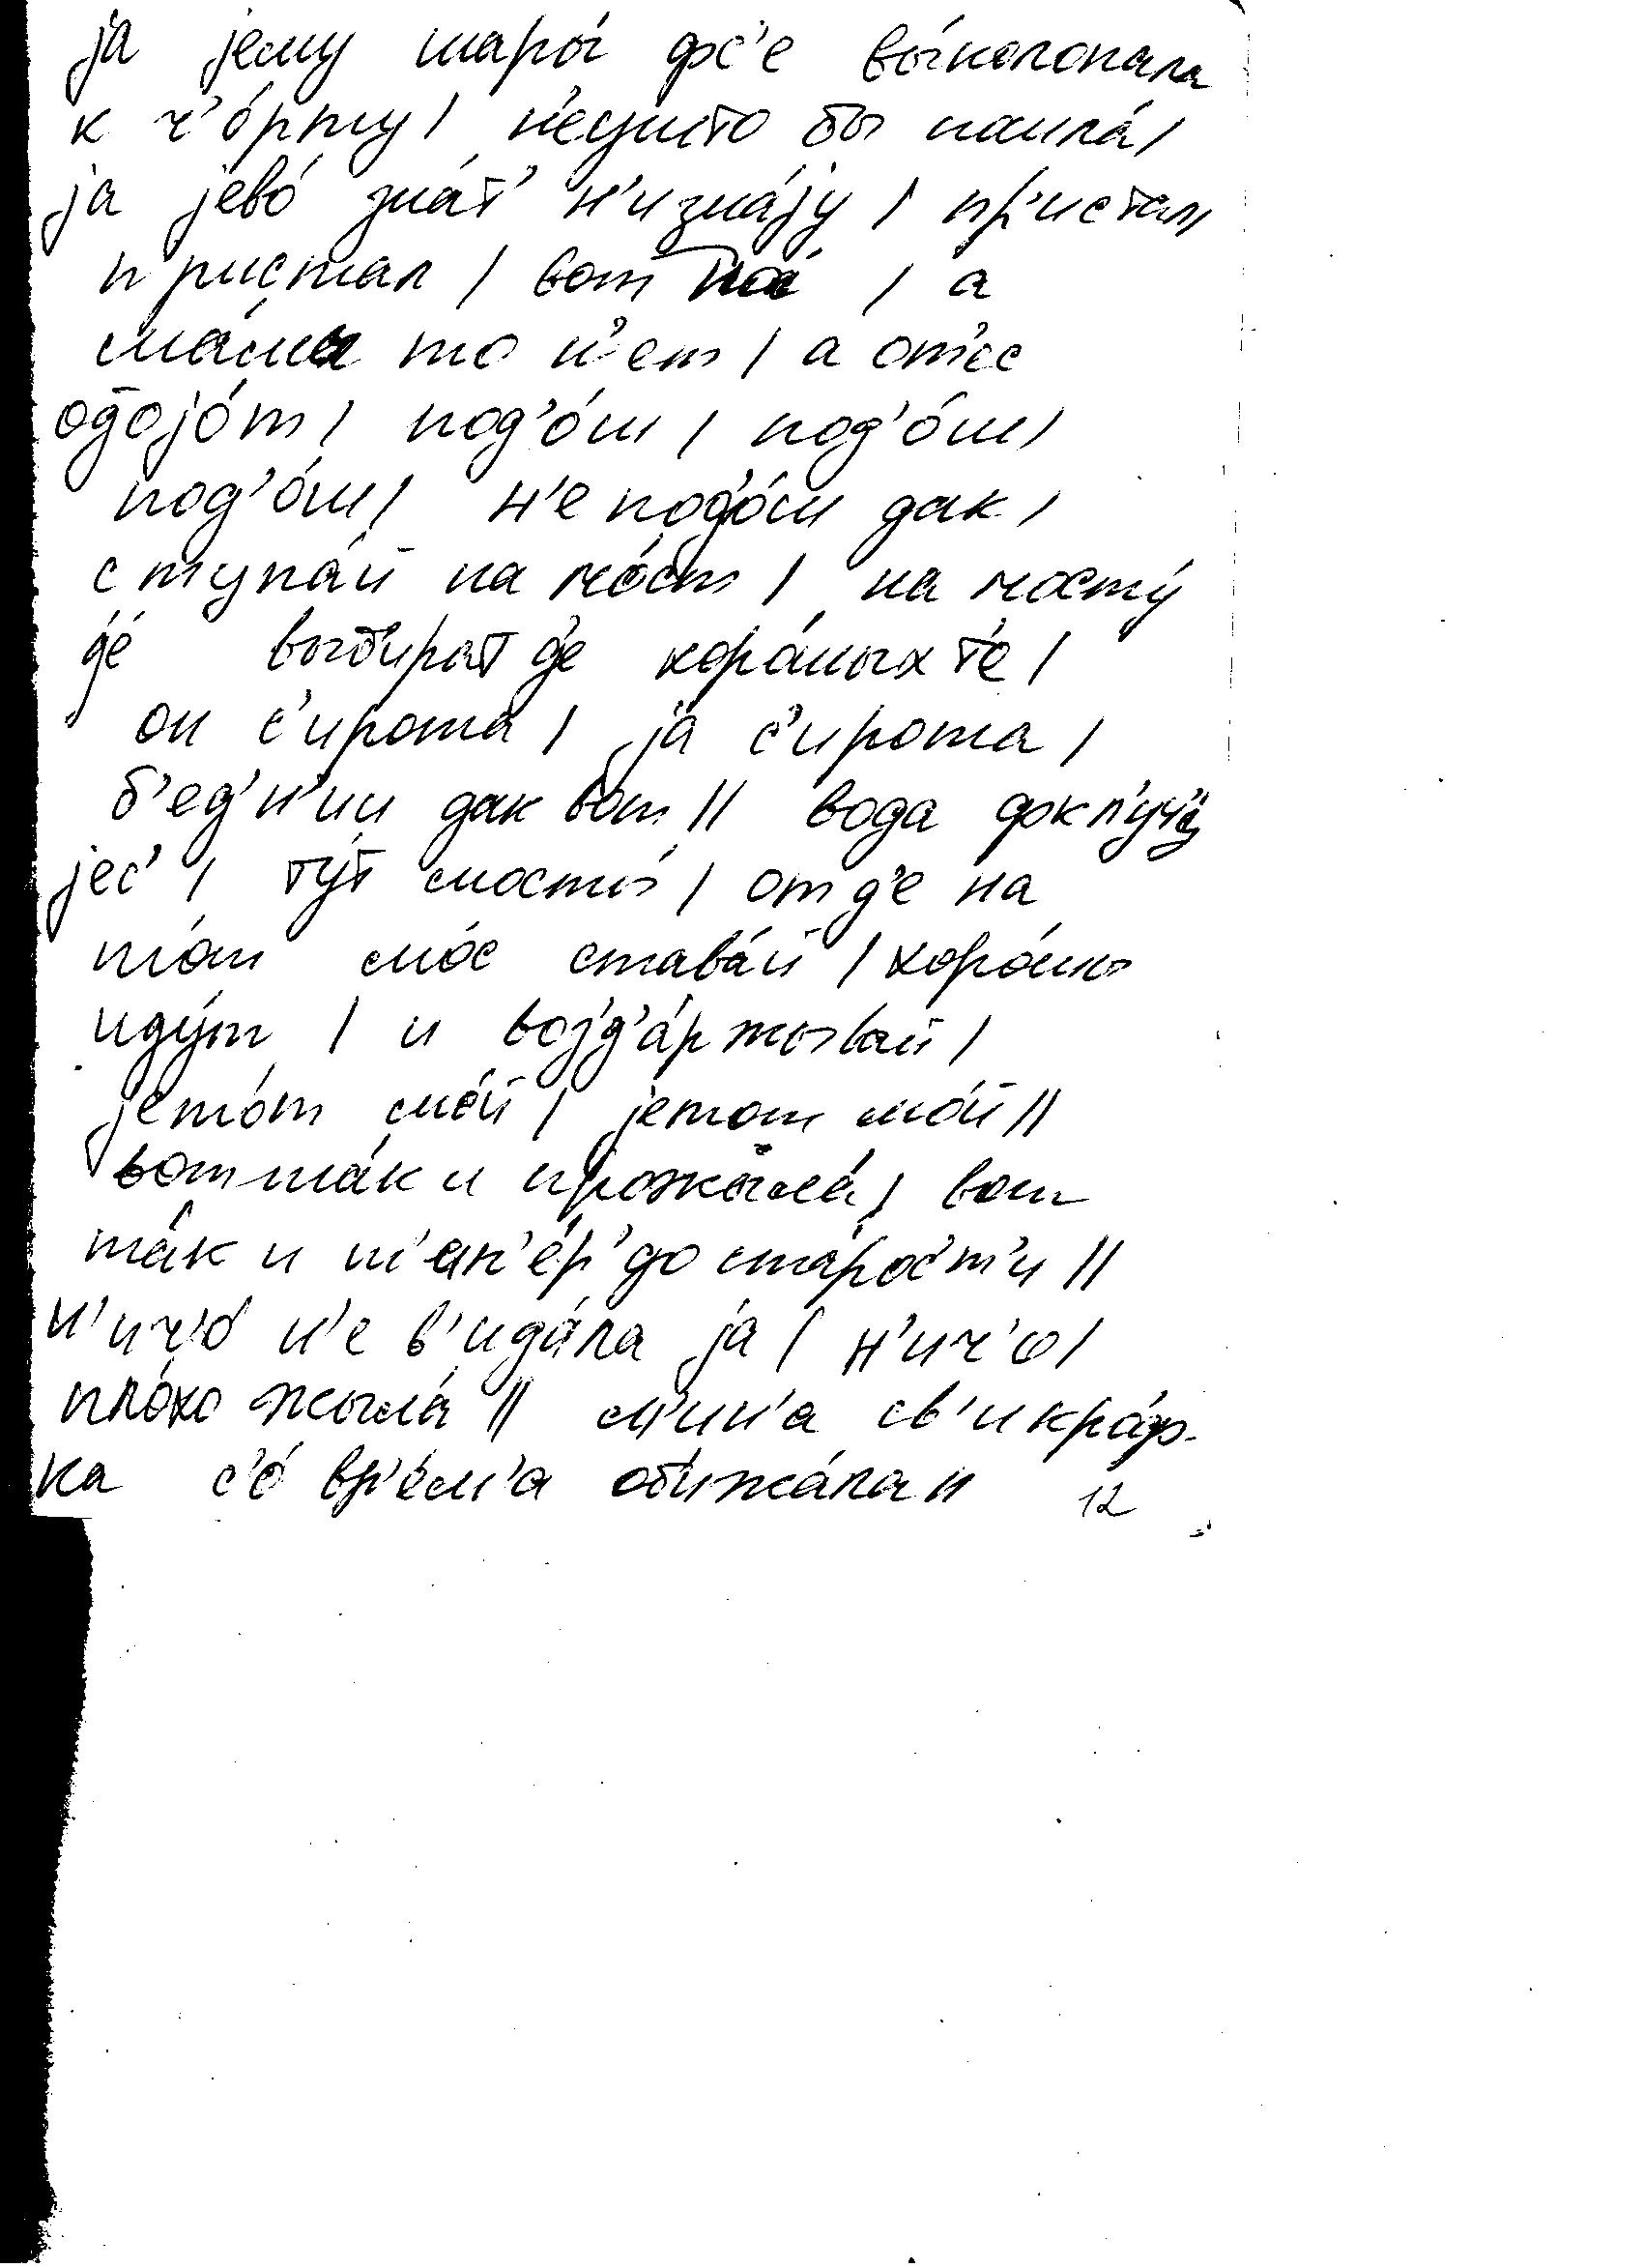 jа jему шары́ фс'е вы́колопала
к ч'о́рту / н'ешто бы пошла́ /
jа jево́ зна́т' н'изна́jу / пр'истал /
пристал / вот / а
ма́мы то н'ет / а от'ес
одоjо́т / под'о́ш / под'о́ш /
под'о́ш / н'е под'о́ш дак /
ступа́й на мо́ст / на мосту́
д'е́ выбират д'е хоро́шых т'е /
он с'ирота / jа с'ирота /
б'ед'н'ии дак вот // вода фкл'уч'у́
jес' / ту́т мосты́ / от д'е на
то́т мо́с става́й / хоро́шы
иду́т / и возд'а́ржывай /
jето́т мо́й / jетот мо́й //
вот та́к и прожыла́ / вот
та́к и т'еп'е́р' до ста́рос'т'и //
н'ич'о́ н'е в'ида́ла jа / н'ич'о /
пло́хо жыла́ // м'ин'а св'икро́ф-
ка с'о́ вр'е́м'а об'ижа́ла //
12